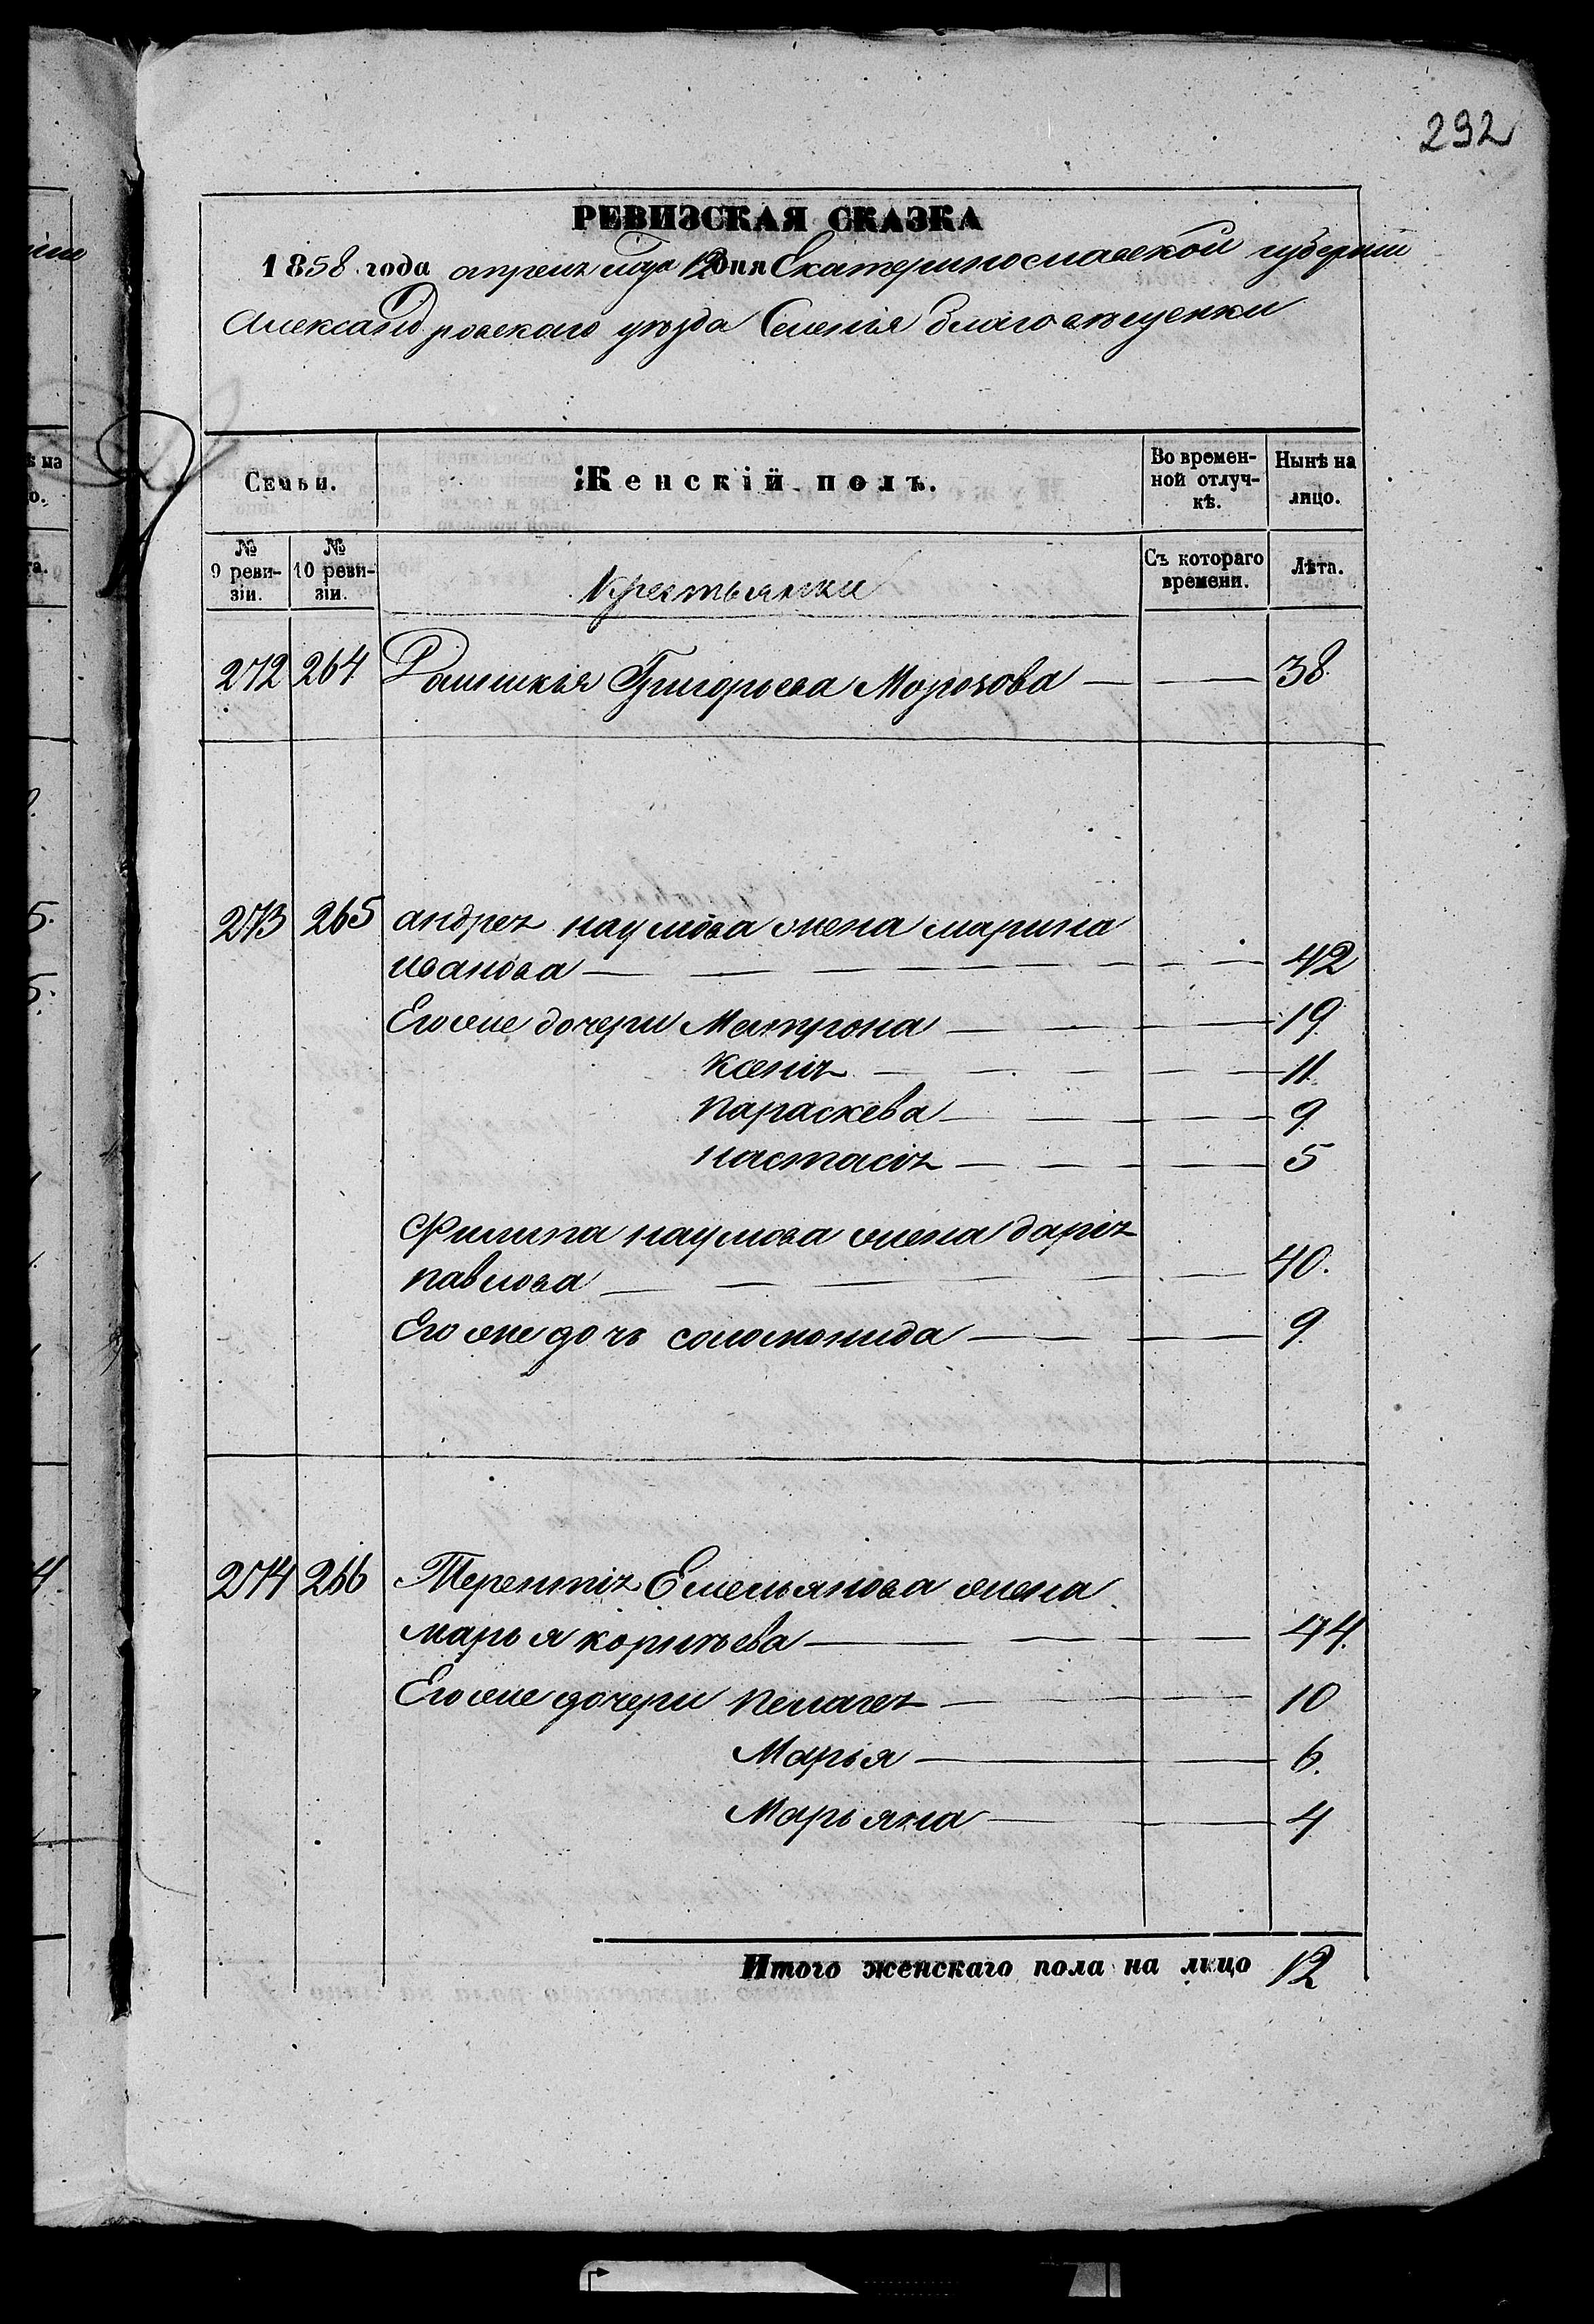 292
РЕВИЗСКАЯ СКАЗКА
1858 года апреля 12 дня Екатеринославской губернии
Александровскаго уезда Селенія благовещенки
Семьи. Женскій полъ. Во времен-ной отлуч-кѣ. Нынѣ на лицо.
№ 9 реви-зіи. № 10 реви-зіи. Крестьянки Съ котораго времени. Лѣта.
272 264 Григорьева Морозова — 38
273 265 андрея наумова жена марина
иванова — 42
Его же дочери Матрона — 19
ксенія — 11
параскева — 9
настасія — 5
Филипа наумова жена дарія
павлова — 40.
Его же дочь соломонида — 9
274 266 Терентія Емельянова жена
марья корнѣева — 44
Его же дочери пелагея — 10
Марья — 6.
Марьяна — 4
Итого женскаго пола на лицо 12